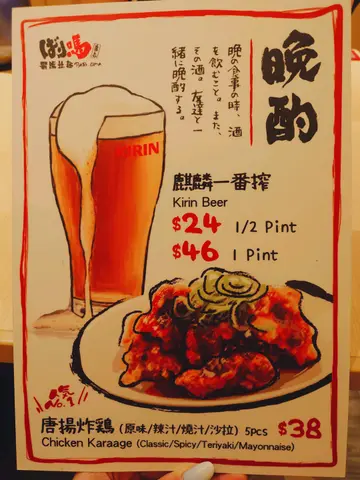 ばり嗎
晩酌
晩の食事の時、酒
を飲むこと。また、
その酒。友達と一
緒に晩酌する。
KIRIN
麒麟一番搾
Kirin Beer
$24 1/2 Pint
$46 1 Pint
人気
No.1
唐揚炸鶏 (原味/辣汁/燒汁/沙拉) 5pcs $38
Chicken Karaage (Classic/Spicy/Teriyaki/Mayonnaise)